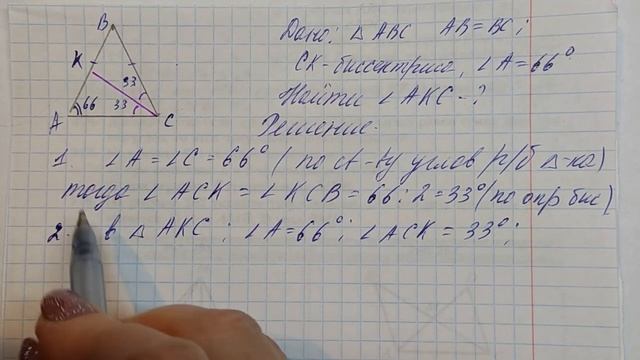 B
K
33
A 66 33 C
Дано: △ ABC AB = BC;
CK - биссектриса, ∠A = 66°
Найти ∠AKC - ?
Решение.
1. ∠A = ∠C = 66° (по св-ву углов р/б △-ка)
тогда ∠ACK = ∠KCB = 66:2 = 33° (по опр бис)
2. в △AKC; ∠A = 66°; ∠ACK = 33°;